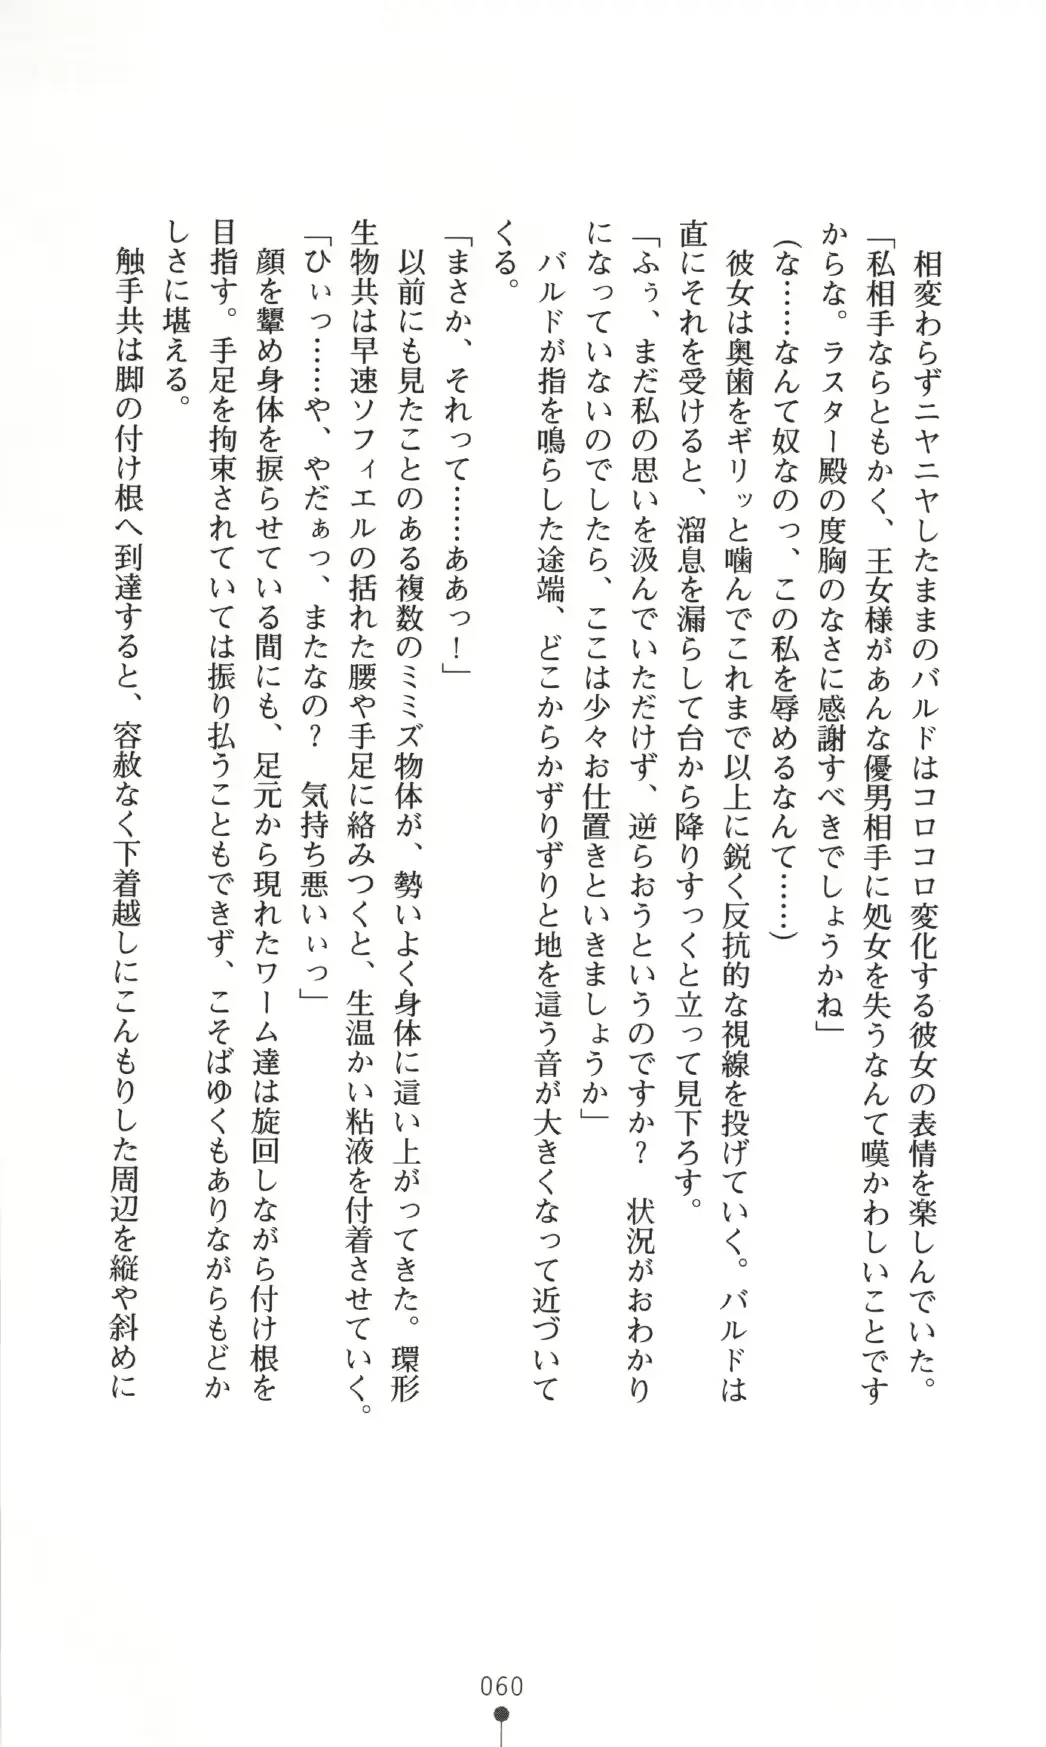 相変わらずニヤニヤしたままのバルドはコロコロ変化する彼女の表情を楽しんでいた。
「私相手ならともかく、王女様があんな優男相手に処女を失うなんて嘆かわしいことです
からな。ラスター殿の度胸のなさに感謝すべきでしょうかね」
(な……なんて奴なのっ、この私を辱めるなんて……)
　彼女は奥歯をギリッと噛んでこれまで以上に鋭く反抗的な視線を投げていく。バルドは
直にそれを受けると、溜息を漏らして台から降りすっくと立って見下ろす。
「ふぅ、まだ私の思いを汲んでいただけず、逆らおうというのですか？　状況がおわかり
になっていないのでしたら、ここは少々お仕置きといきましょうか」
　バルドが指を鳴らした途端、どこからかずりずりと地を這う音が大きくなって近づいて
くる。
「まさか、それって……ああっ！」
　以前にも見たことのある複数のミミズ物体が、勢いよく身体に這い上がってきた。環形
生物共は早速ソフィエルの括れた腰や手足に絡みつくと、生温かい粘液を付着させていく。
「ひぃっ……や、やだぁっ、またなの？　気持ち悪いぃっ」
　顔を顰め身体を捩らせている間にも、足元から現れたワーム達は旋回しながら付け根を
目指す。手足を拘束されていては振り払うこともできず、こそばゆくもありながらもどか
しさに堪える。
　触手共は脚の付け根へ到達すると、容赦なく下着越しにこんもりした周辺を縦や斜めに
060